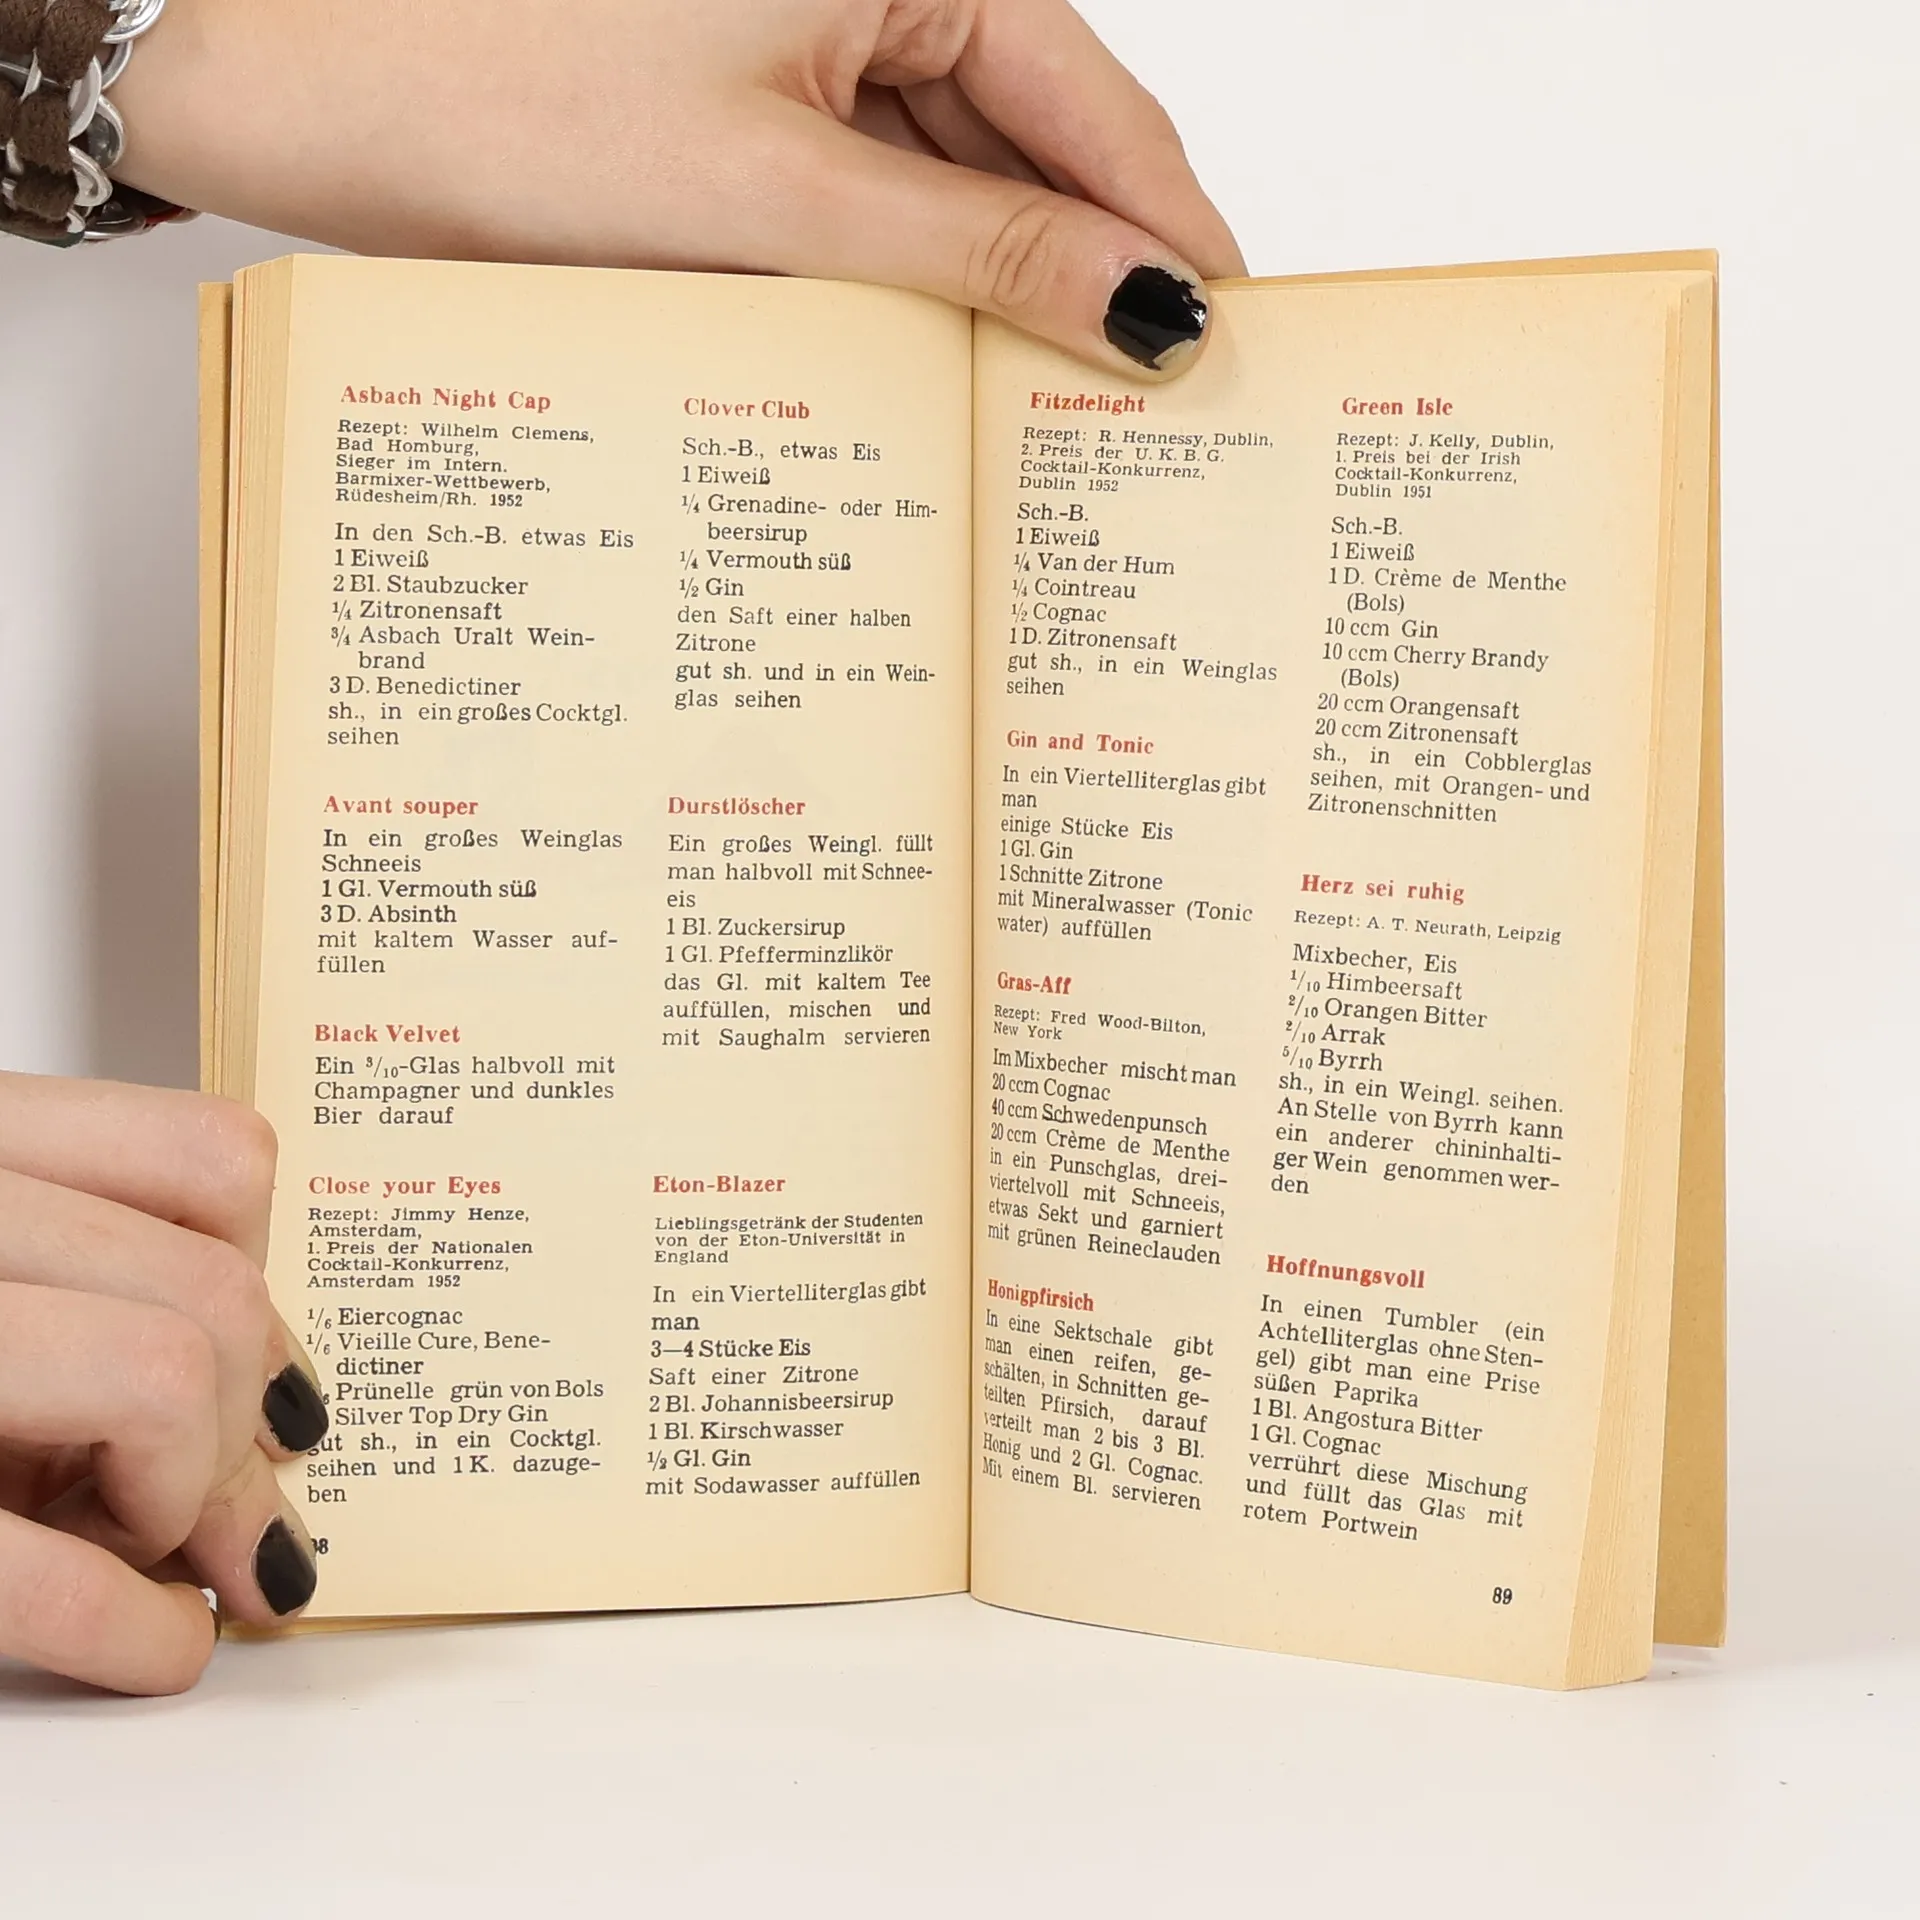 Asbach Night Cap
Rezept: Wilhelm Clemens,
Bad Homburg,
Sieger im Intern.
Barmixer-Wettbewerb,
Rüdesheim/Rh. 1952
In den Sch.-B. etwas Eis
1 Eiweiß
2 Bl. Staubzucker
1/4 Zitronensaft
3/4 Asbach Uralt Wein-
brand
3 D. Benedictiner
sh., in ein großes Cocktgl.
seihen
Avant souper
In ein großes Weinglas
Schneeis
1 Gl. Vermouth süß
3 D. Absinth
mit kaltem Wasser auf-
füllen
Black Velvet
Ein 3/10-Glas halbvoll mit
Champagner und dunkles
Bier darauf
Close your Eyes
Rezept: Jimmy Henze,
Amsterdam,
1. Preis der Nationalen
Cocktail-Konkurrenz,
Amsterdam 1952
1/6 Eiercognac
1/6 Vieille Cure, Bene-
dictiner
Prünelle grün von Bols
Silver Top Dry Gin
gut sh., in ein Cocktgl.
seihen und 1 K. dazuge-
ben
Clover Club
Sch.-B., etwas Eis
1 Eiweiß
1/4 Grenadine- oder Him-
beersirup
1/4 Vermouth süß
1/2 Gin
den Saft einer halben
Zitrone
gut sh. und in ein Wein-
glas seihen
Durstlöscher
Ein großes Weingl. füllt
man halbvoll mit Schnee-
eis
1 Bl. Zuckersirup
1 Gl. Pfefferminzlikör
das Gl. mit kaltem Tee
auffüllen, mischen und
mit Saughalm servieren
Eton-Blazer
Lieblingsgetränk der Studenten
von der Eton-Universität in
England
In ein Viertelliterglas gibt
man
3—4 Stücke Eis
Saft einer Zitrone
2 Bl. Johannisbeersirup
1 Bl. Kirschwasser
1/2 Gl. Gin
mit Sodawasser auffüllen
Fitzdelight
Rezept: R. Hennessy, Dublin,
2. Preis der U. K. B. G.
Cocktail-Konkurrenz,
Dublin 1952
Sch.-B.
1 Eiweiß
1/4 Van der Hum
1/4 Cointreau
1/2 Cognac
1 D. Zitronensaft
gut sh., in ein Weinglas
seihen
Gin and Tonic
In ein Viertelliterglas gibt
man
einige Stücke Eis
1 Gl. Gin
1 Schnitte Zitrone
mit Mineralwasser (Tonic
water) auffüllen
Gras-Aff
Rezept: Fred Wood-Bilton,
New York
Im Mixbecher mischt man
20 ccm Cognac
40 ccm Schwedenpunsch
20 ccm Crème de Menthe
in ein Punschglas, drei-
viertelvoll mit Schneeis,
etwas Sekt und garniert
mit grünen Reineclauden
Honigpfirsich
In eine Sektschale gibt
man einen reifen, ge-
schälten, in Schnitten ge-
teilten Pfirsich, darauf
verteilt man 2 bis 3 Bl.
Honig und 2 Gl. Cognac.
Mit einem Bl. servieren
Green Isle
Rezept: J. Kelly, Dublin,
1. Preis bei der Irish
Cocktail-Konkurrenz,
Dublin 1951
Sch.-B.
1 Eiweiß
1 D. Crème de Menthe
(Bols)
10 ccm Gin
10 ccm Cherry Brandy
(Bols)
20 ccm Orangensaft
20 ccm Zitronensaft
sh., in ein Cobblerglas
seihen, mit Orangen- und
Zitronenschnitten
Herz sei ruhig
Rezept: A. T. Neurath, Leipzig
Mixbecher, Eis
1/10 Himbeersaft
2/10 Orangen Bitter
2/10 Arrak
5/10 Byrrh
sh., in ein Weingl. seihen.
An Stelle von Byrrh kann
ein anderer chininhalti-
ger Wein genommen wer-
den
Hoffnungsvoll
In einen Tumbler (ein
Achtelliterglas ohne Sten-
gel) gibt man eine Prise
süßen Paprika
1 Bl. Angostura Bitter
1 Gl. Cognac
verrührt diese Mischung
und füllt das Glas mit
rotem Portwein
89